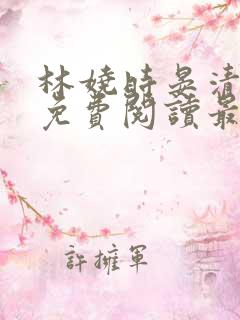 林嬈時晏清
免費閱讀最
許擁軍